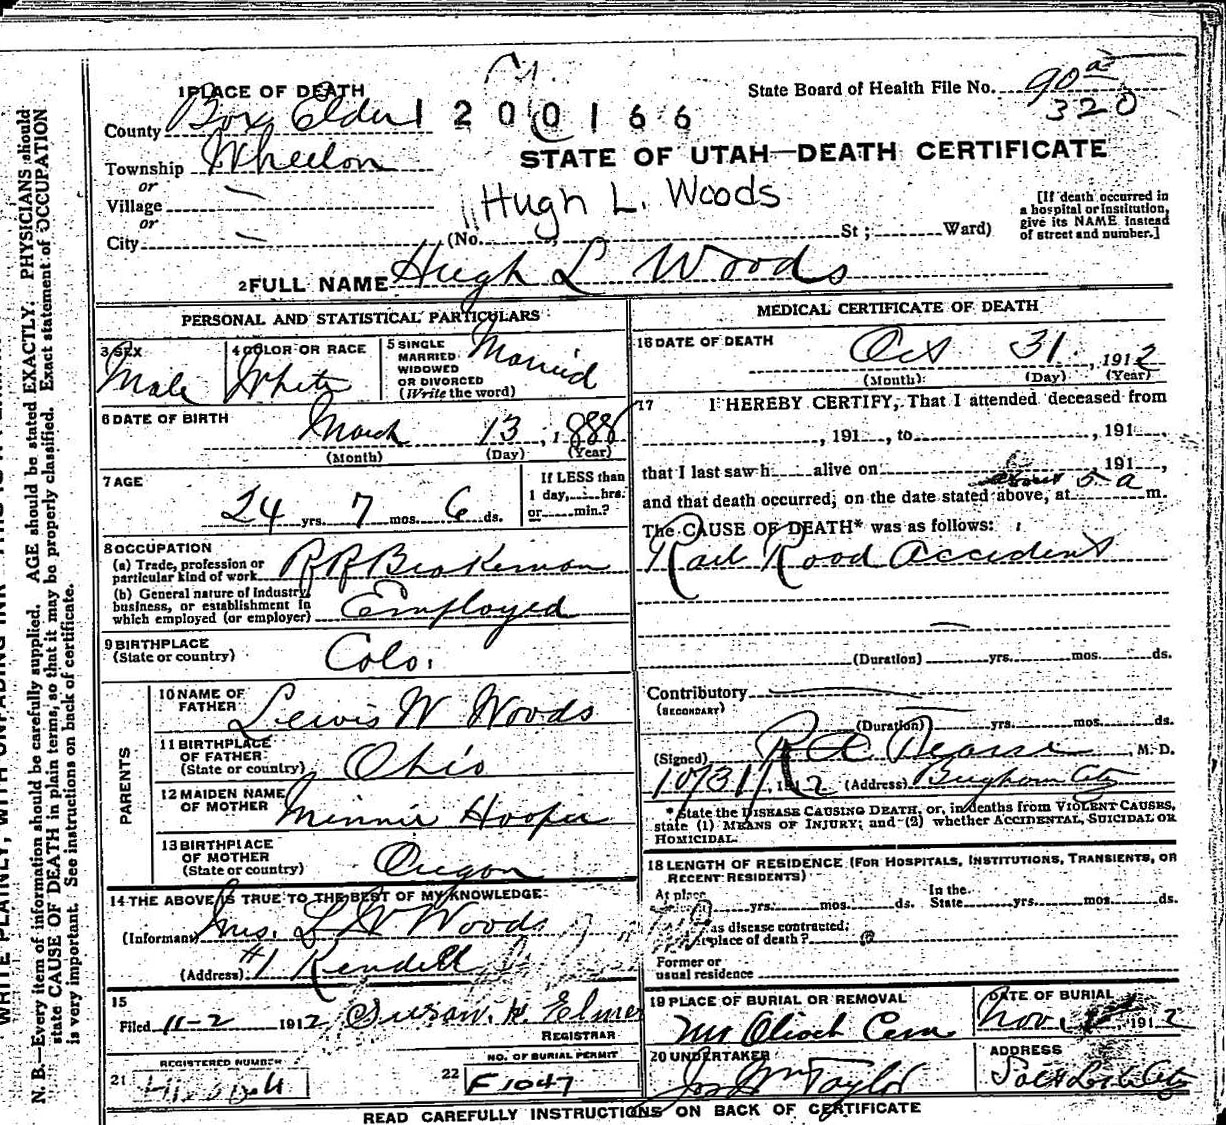 State Board of Health File No. 90a
320
1 PLACE OF DEATH
County Box Elder
1200166
Township Wheelon
STATE OF UTAH—DEATH CERTIFICATE
or
Village
or
Hugh L. Woods
[If death occurred in a hospital or institution, give its NAME instead of street and number.]
City (No. , St ; Ward)
2 FULL NAME Hugh L Woods
PERSONAL AND STATISTICAL PARTICULARS
3 SEX Male
4 COLOR OR RACE White
5 SINGLE MARRIED WIDOWED OR DIVORCED (Write the word) Married
6 DATE OF BIRTH March 13, 1888
(Month) (Day) (Year)
7 AGE 24 yrs. 7 mos. 6 ds.
If LESS than 1 day, hrs. or min.?
8 OCCUPATION
(a) Trade, profession or particular kind of work RR Brakeman
(b) General nature of Industry, business, or establishment in which employed (or employer) Employed
9 BIRTHPLACE (State or country) Colo.
PARENTS
10 NAME OF FATHER Lewis W Woods
11 BIRTHPLACE OF FATHER (State or country) Ohio
12 MAIDEN NAME OF MOTHER Minnie Hooper
13 BIRTHPLACE OF MOTHER (State or country) Oregon
14 THE ABOVE IS TRUE TO THE BEST OF MY KNOWLEDGE
(Informant) Mrs. L W Woods
(Address) #1 Kendell
15 Filed 11-2 1912 Susan. K. Elmer
REGISTRAR
REGISTERED NUMBER
21
NO. OF BURIAL PERMIT
22 F 1047
MEDICAL CERTIFICATE OF DEATH
16 DATE OF DEATH Oct 31, 1912
(Month) (Day) (Year)
17 I HEREBY CERTIFY, That I attended deceased from
, 191 , to , 191 ,
that I last saw h alive on 191 ,
and that death occurred, on the date stated above, at about 5 a m.
The CAUSE OF DEATH* was as follows:
Rail Road Accident
(Duration) yrs. mos. ds.
Contributory
(SECONDARY)
(Duration) yrs. mos. ds.
(Signed) R A Pearse M. D.
10/31, 1912 (Address) Brigham City
* State the DISEASE CAUSING DEATH, or, in deaths from VIOLENT CAUSES, state (1) MEANS OF INJURY; and (2) whether ACCIDENTAL, SUICIDAL OR HOMICIDAL.
18 LENGTH OF RESIDENCE (FOR HOSPITALS, INSTITUTIONS, TRANSIENTS, OR RECENT RESIDENTS)
At place yrs. mos. ds. In the State yrs. mos. ds.
as disease contracted,
place of death?
Former or usual residence
19 PLACE OF BURIAL OR REMOVAL Mt Olivet Cem
DATE OF BURIAL Nov. 1912
20 UNDERTAKER Jos Wm Taylor
ADDRESS Salt Lake City
READ CAREFULLY INSTRUCTIONS ON BACK OF CERTIFICATE
N. B.—Every item of information should be carefully supplied. AGE should be stated EXACTLY. PHYSICIANS should
state CAUSE OF DEATH in plain terms, so that it may be properly classified. Exact statement of OCCUPATION
is very important. See instructions on back of certificate.
WRITE PLAINLY, WITH UNFADING INK